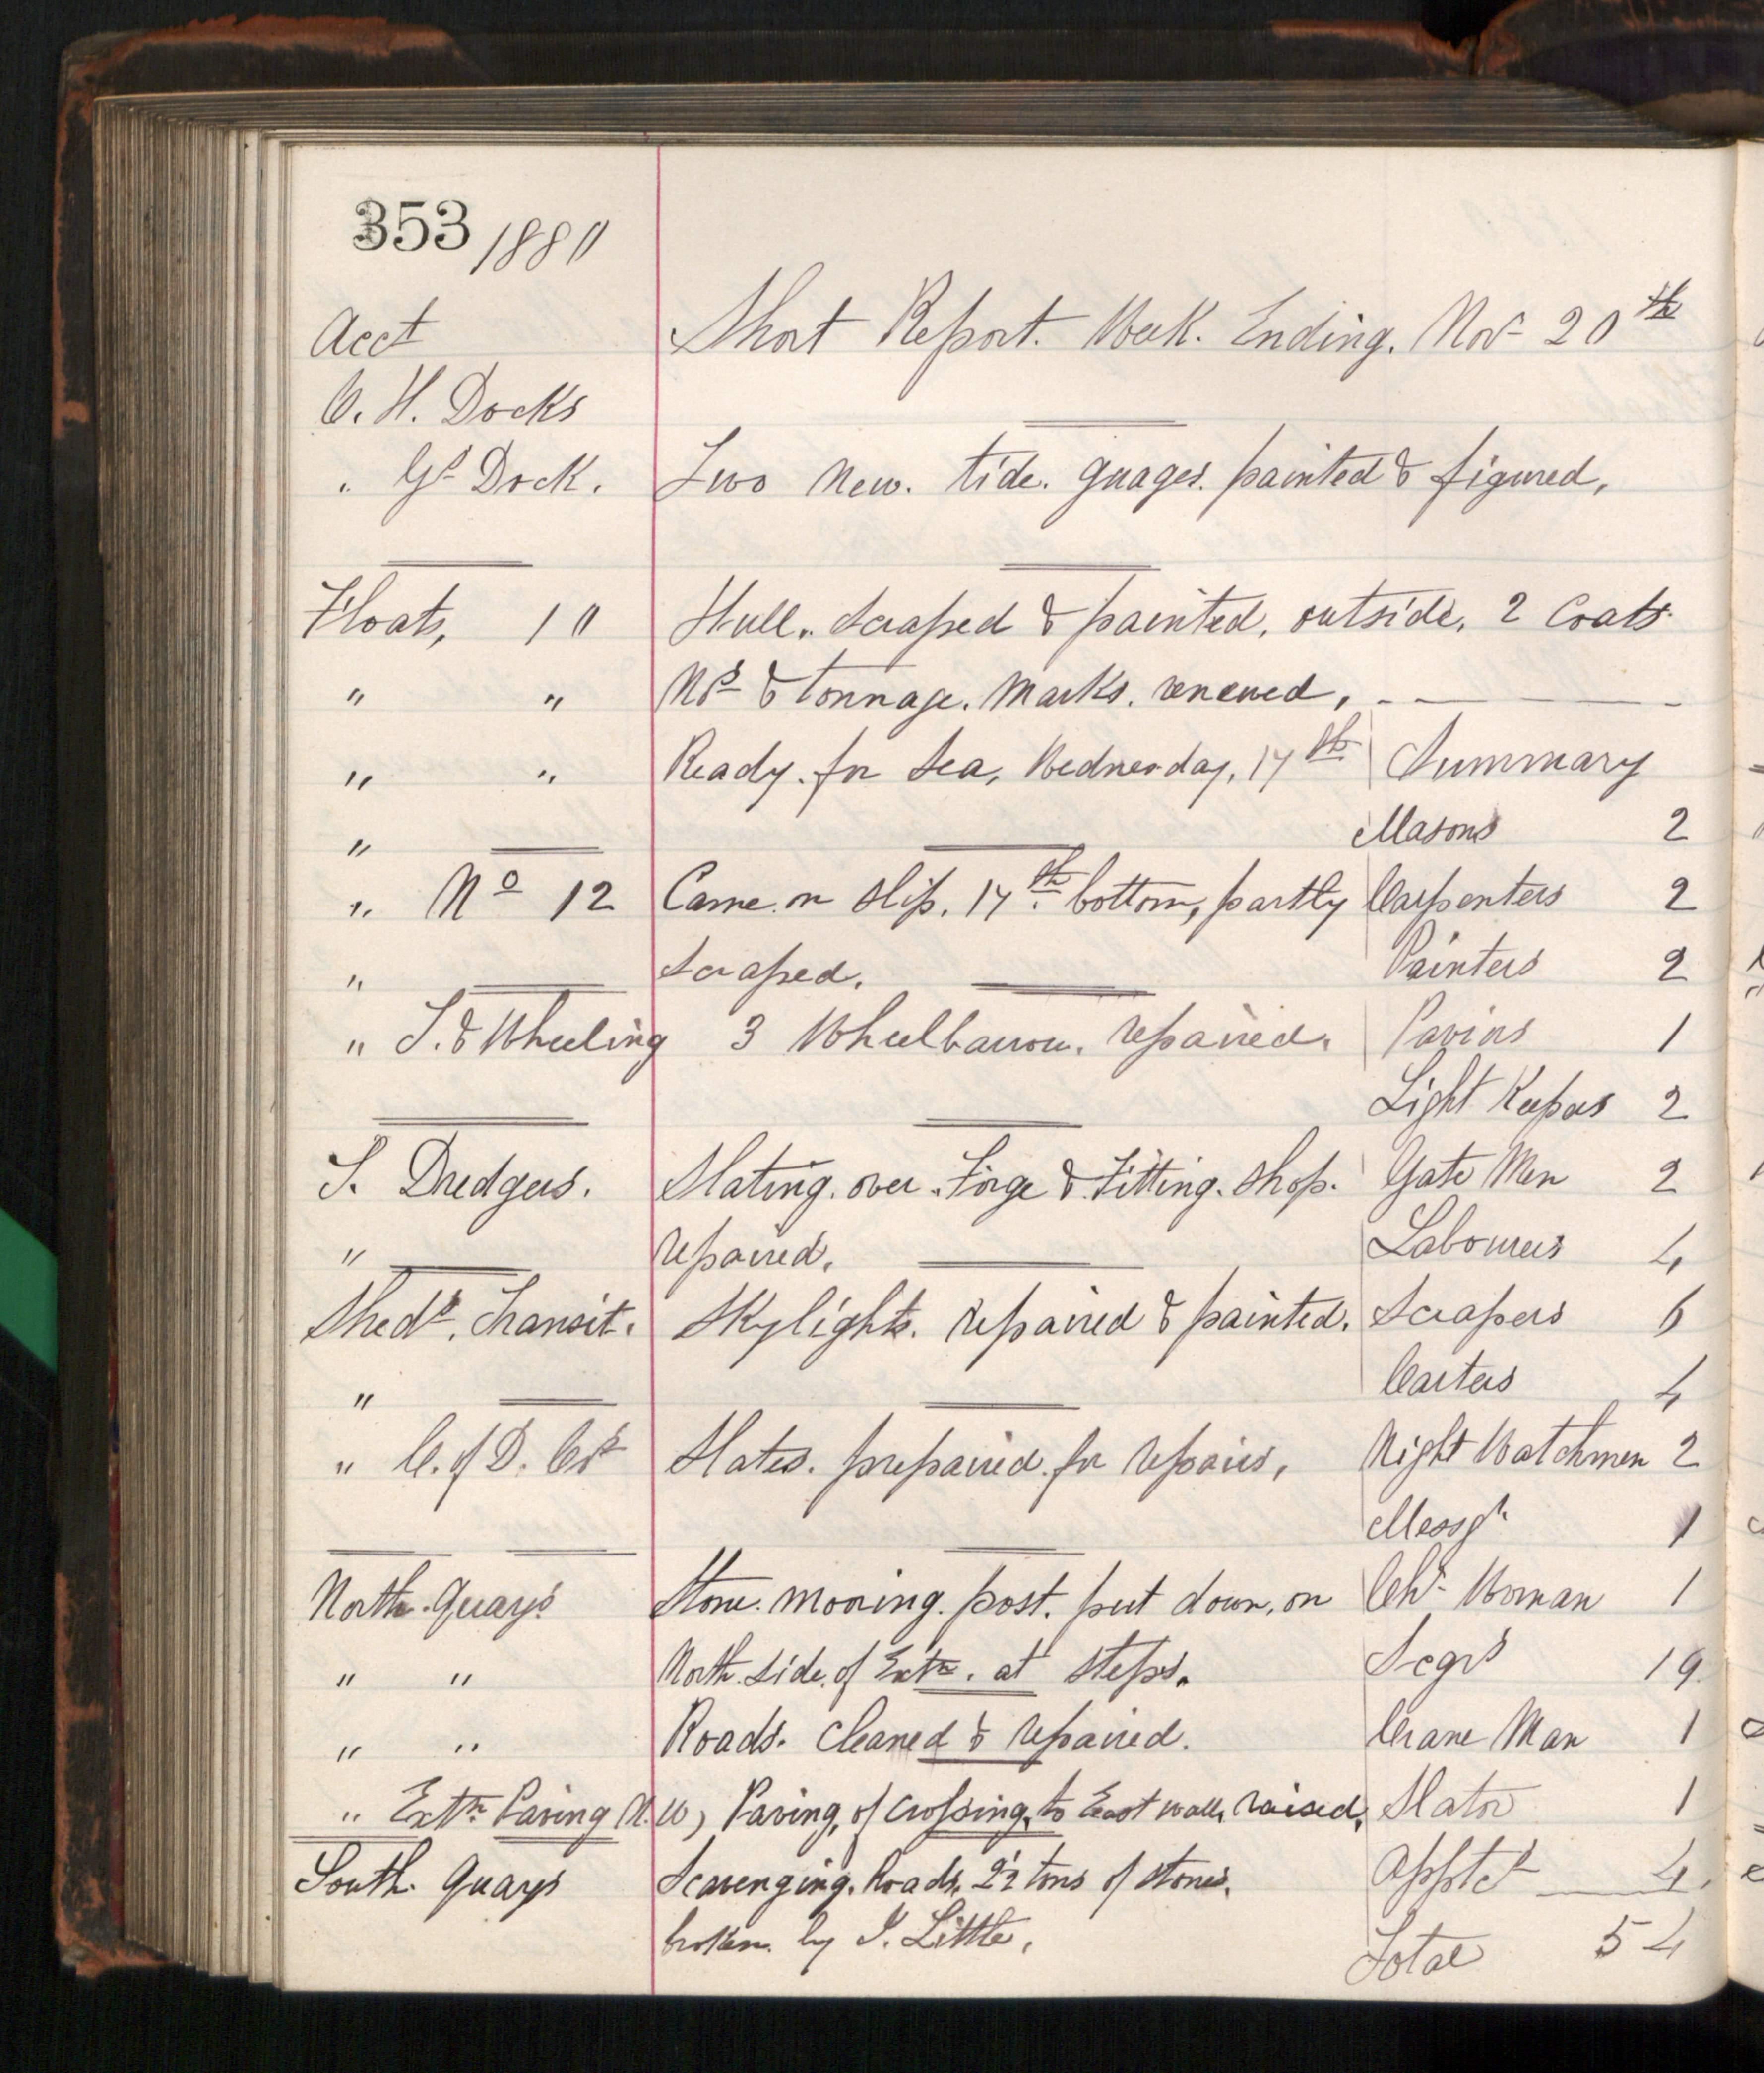 353 1880
Acct Short Report. Week. Ending. Nov 20th
C. H. Docks
" Gg Dock. Two New. tide. guages. painted & figured,
Floats, 10 Hull. Scraped & painted, outside, 2 Coats.
" " Nos & tonnage. Marks. renewed,
" " Ready. for Sea, Wednesday, 17th Summary
" Masons 2
" No 12 Came. on Slip. 17th bottom, partly Carpenters 2
" Scraped. Painters 2
" T. & Wheeling 3 Wheelbarrow. repaired. Paviors 1
Light Keepers 2
S. Dredgers. Slating. over. Forge & Fitting. Shop. Gate Men 2
" repaired. Labourers 4
Sheds. Transit. Skylights. repaired & painted. Scrapers 6
" Carters 4
" C. of D. Co's Slates. prepaired. for repairs, Night Watchmen 2
Messgr 1
North Quays Stone. mooring. post. put down, on Chr Woman 1
" " North. Side. of Extn. at Steps. Scgrs 19
" " Roads. Cleaned & repaired. Crane Man 1
" Extn Paving N.W, Paving, of Crossing, to East wall, raised, Slator 1
South. Quays Scavenging. Roads, 22 tons of Stones. Apptcs 4
broken. by J. Little, Total 54